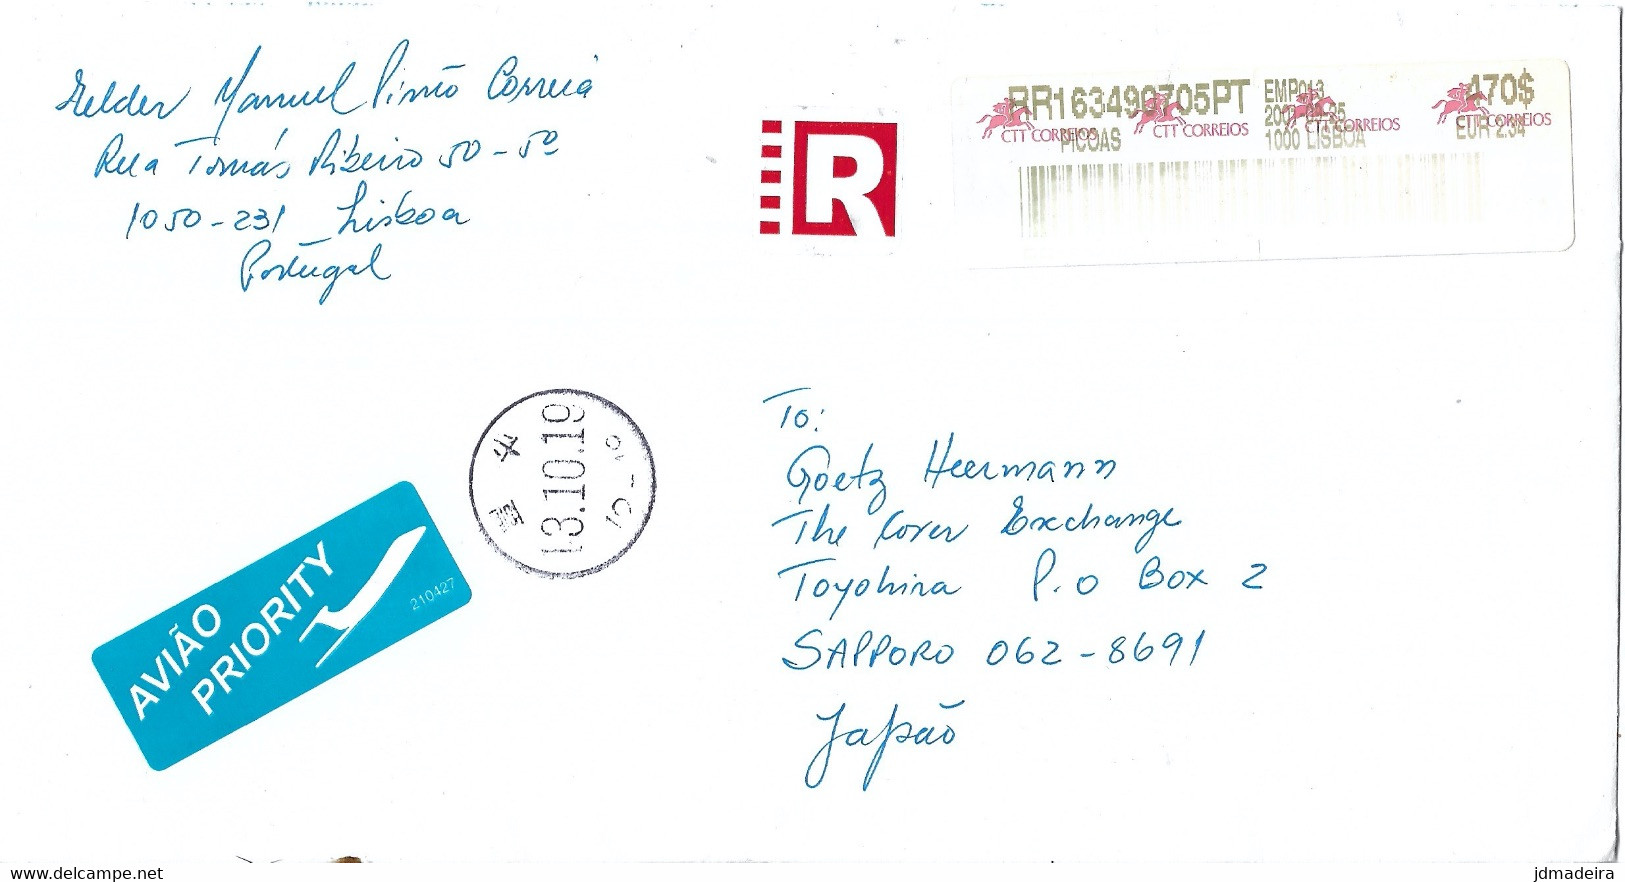 Helder Manuel Pinto Correia
Rua Tomás Ribeiro 50 - 5º
1050-231 Lisboa
Portugal
R
RR163490705PT
PICOAS
EMP013
1000 LISBOA
470$
EUR 2.34
CTT CORREIOS
CTT CORREIOS
CTT CORREIOS
CTT CORREIOS
13.10.19
AVIÃO
PRIORITY
210427
To:
Goetz Heermann
The Cover Exchange
Toyohira P.O Box 2
SAPPORO 062-8691
Japão
delcampe.net
jdmadeira